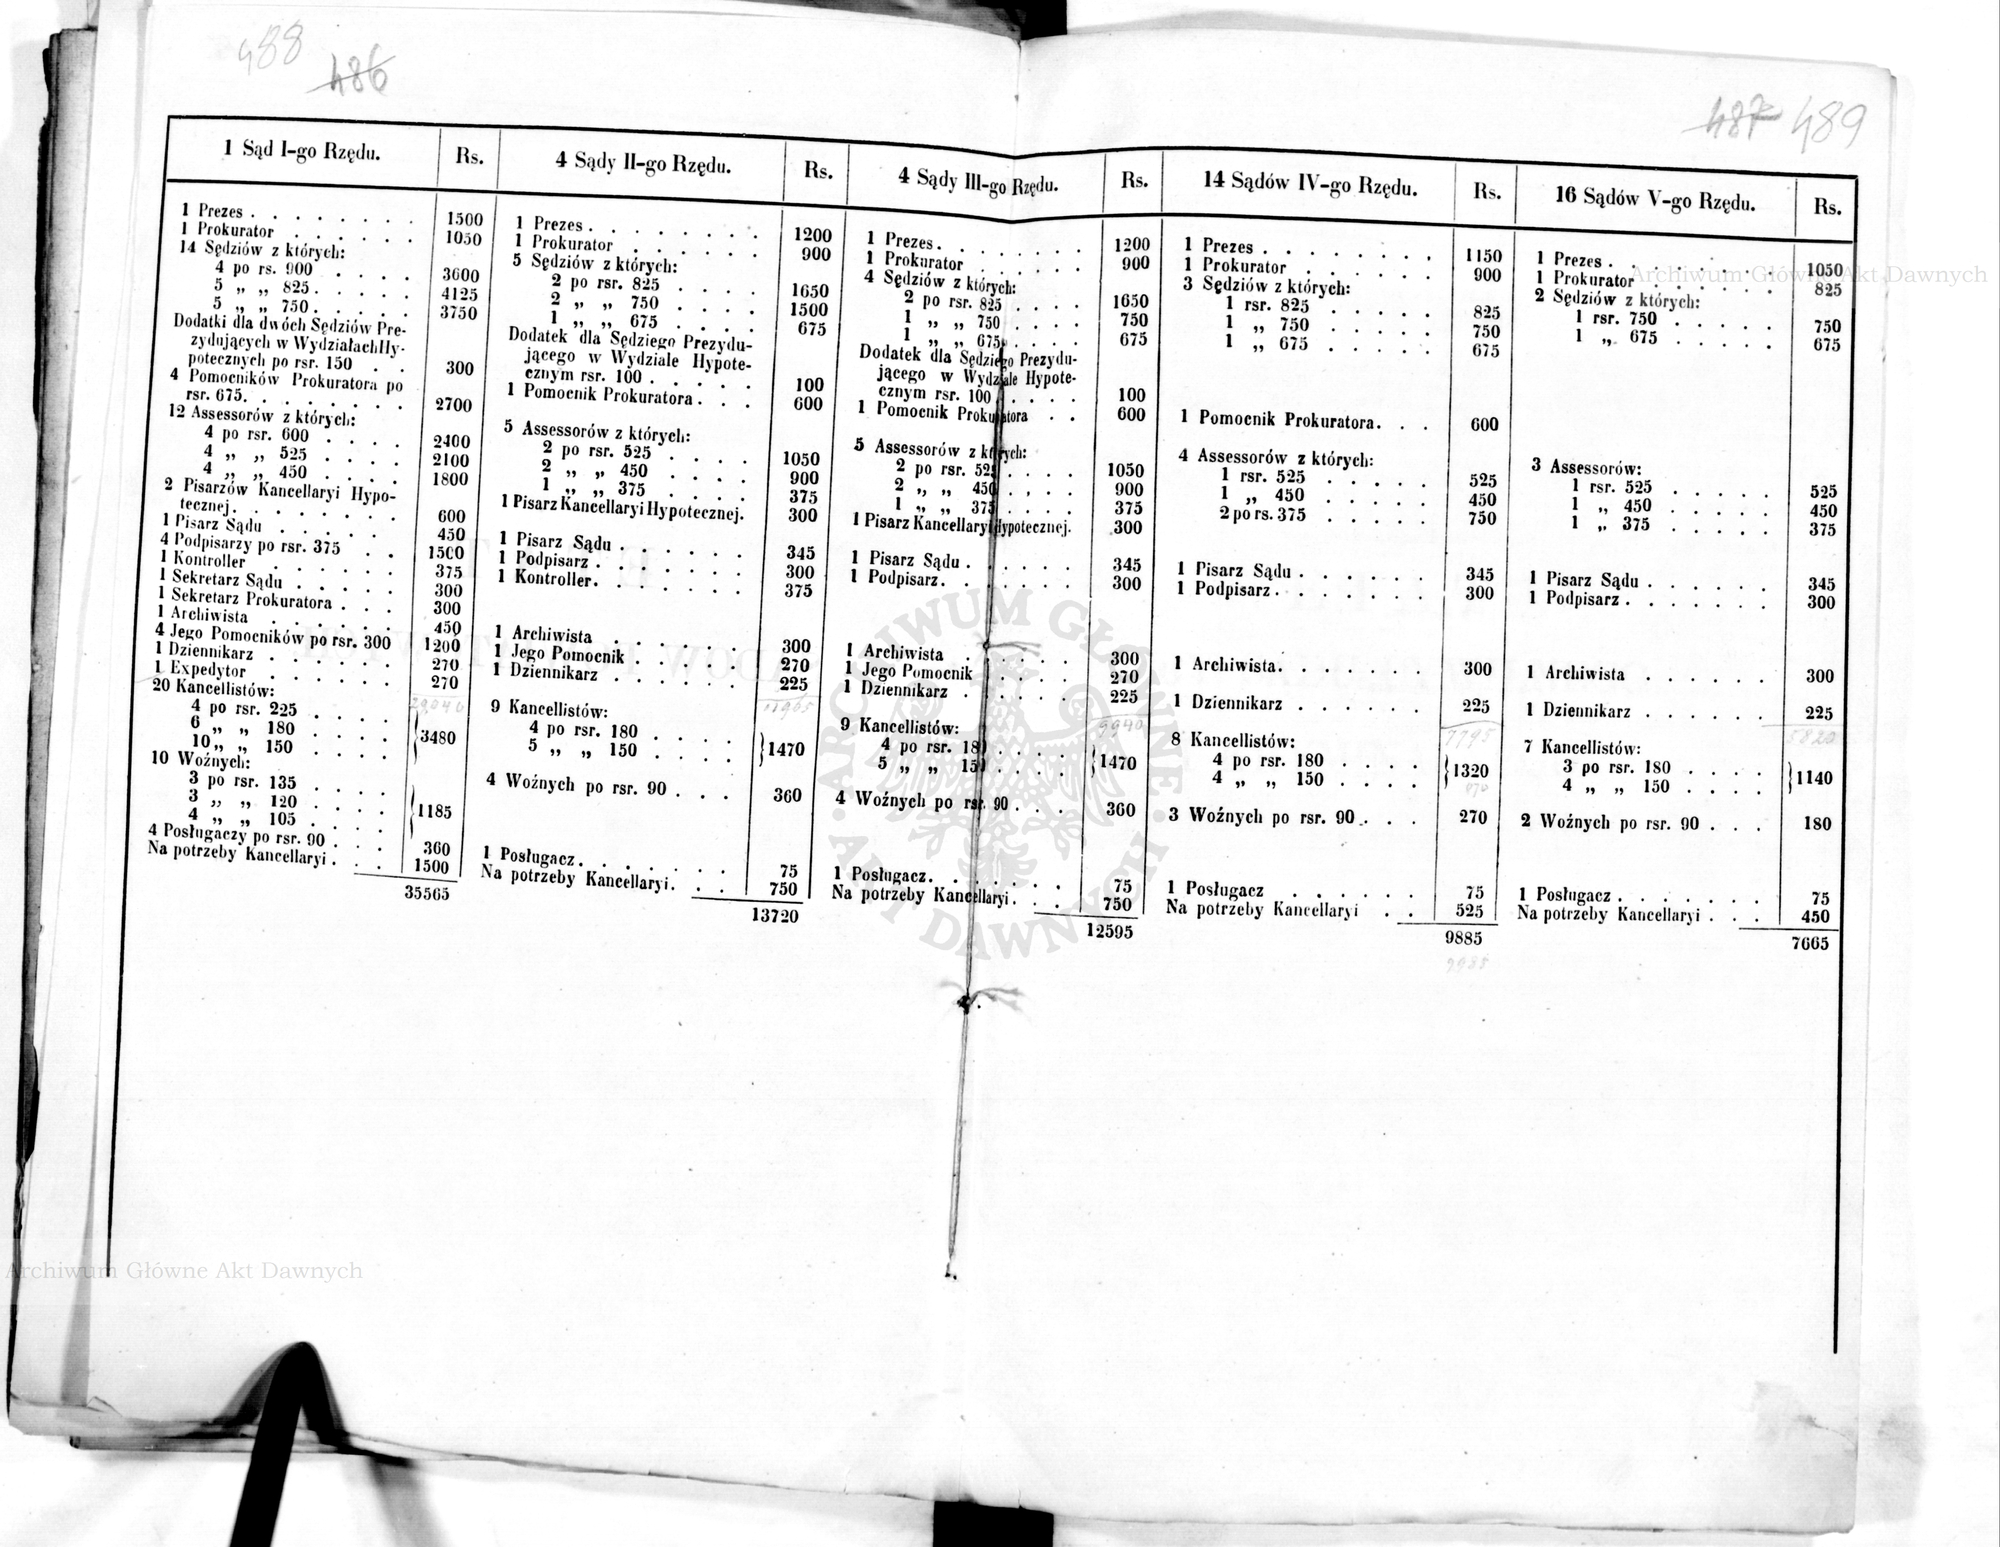 488
486
487 489
1 Sąd I-go Rzędu. Rs.
1 Prezes . . . . . . . . 1500
1 Prokurator . . . . . . 1050
14 Sędziów z których:
4 po rs. 900 . . . . 3600
5 „ „ 825 . . . . . 4125
5 „ „ 750 . . . . . 3750
Dodatki dla dwóch Sędziów Pre-
zydujących w Wydziałach Hy-
potecznych po rsr. 150 . . 300
4 Pomocników Prokuratora po
rsr. 675. . . . . . . . 2700
12 Assessorów z których:
4 po rsr. 600 . . . . 2400
4 „ „ 525 . . . . 2100
4 „ „ 450 . . . . 1800
2 Pisarzów Kancellaryi Hypo-
tecznej. . . . . . . . 600
1 Pisarz Sądu . . . . . 450
4 Podpisarzy po rsr. 375 . . 1500
1 Kontroller . . . . . . 375
1 Sekretarz Sądu . . . . . 300
1 Sekretarz Prokuratora . . . 300
1 Archiwista . . . . . . 450
4 Jego Pomocników po rsr. 300 1200
1 Dziennikarz . . . . . . 270
1 Expedytor . . . . . . 270
20 Kancellistów:
29,040
4 po rsr. 225 . . . .
6 „ „ 180 . . . . 3480
10 „ „ 150 . . . .
10 Woźnych:
3 po rsr. 135 . . . .
3 „ „ 120 . . . . 1185
4 „ „ 105 . . . .
4 Posługaczy po rsr. 90 . . . 360
Na potrzeby Kancellaryi . . . 1500
35565
4 Sądy II-go Rzędu. Rs.
1 Prezes . . . . . . . . 1200
1 Prokurator . . . . . . 900
5 Sędziów z których:
2 po rsr. 825 . . . . 1650
2 „ „ 750 . . . . 1500
1 „ „ 675 . . . . 675
Dodatek dla Sędziego Prezydu-
jącego w Wydziale Hypote-
cznym rsr. 100 . . . . . 100
1 Pomocnik Prokuratora . . . 600
5 Assessorów z których:
2 po rsr. 525 . . . . 1050
2 „ „ 450 . . . . 900
1 „ „ 375 . . . . 375
1 Pisarz Kancellaryi Hypotecznej. 300
1 Pisarz Sądu . . . . . . 345
1 Podpisarz . . . . . . . 300
1 Kontroller. . . . . . . 375
1 Archiwista . . . . . . 300
1 Jego Pomocnik . . . . . 270
1 Dziennikarz . . . . . . 225
9 Kancellistów:
4 po rsr. 180 . . . . 1470
5 „ „ 150 . . . .
4 Woźnych po rsr. 90 . . . 360
1 Posługacz. . . . . . . 75
Na potrzeby Kancellaryi. . . 750
13720
4 Sądy III-go Rzędu. Rs.
1 Prezes. . . . . . . . 1200
1 Prokurator . . . . . . 900
4 Sędziów z których:
2 po rsr. 825 . . . . 1650
1 „ „ 750 . . . . 750
1 „ „ 675 . . . . 675
Dodatek dla Sędziego Prezydu-
jącego w Wydziale Hypote-
cznym rsr. 100 . . . . 100
1 Pomocnik Prokuratora . . 600
5 Assessorów z których:
2 po rsr. 525 . . . . 1050
2 „ „ 450 . . . . 900
1 „ „ 375 . . . . 375
1 Pisarz Kancellaryi Hypotecznej. 300
1 Pisarz Sądu . . . . . . 345
1 Podpisarz. . . . . . . 300
1 Archiwista . . . . . . 300
1 Jego Pomocnik . . . . . 270
1 Dziennikarz . . . . . . 225
9940
9 Kancellistów:
4 po rsr. 180 . . . . 1470
5 „ „ 150 . . . .
4 Woźnych po rsr. 90 . . . 360
1 Posługacz. . . . . . . 75
Na potrzeby Kancellaryi. . . 750
12595
14 Sądów IV-go Rzędu. Rs.
1 Prezes . . . . . . . 1150
1 Prokurator . . . . . . 900
3 Sędziów z których:
1 rsr. 825 . . . . . 825
1 „ 750 . . . . . 750
1 „ 675 . . . . . 675
1 Pomocnik Prokuratora. . . 600
4 Assessorów z których:
1 rsr. 525 . . . . . 525
1 „ 450 . . . . . 450
2 po rs. 375 . . . . . 750
1 Pisarz Sądu . . . . . . 345
1 Podpisarz. . . . . . . 300
1 Archiwista. . . . . . . 300
1 Dziennikarz . . . . . . 225
7795
8 Kancellistów:
4 po rsr. 180 . . . . 1320
4 „ „ 150 . . . .
3 Woźnych po rsr. 90 . . . 270
1 Posługacz . . . . . . 75
Na potrzeby Kancellaryi . . 525
9885
16 Sądów V-go Rzędu. Rs.
1 Prezes . . . . . . . 1050
1 Prokurator . . . . . . 825
2 Sędziów z których:
1 rsr. 750 . . . . . 750
1 „ 675 . . . . . 675
3 Assessorów:
1 rsr. 525 . . . . . 525
1 „ 450 . . . . . 450
1 „ 375 . . . . . 375
1 Pisarz Sądu . . . . . . 345
1 Podpisarz . . . . . . . 300
1 Archiwista . . . . . . 300
1 Dziennikarz . . . . . . 225
5820
7 Kancellistów:
3 po rsr. 180 . . . . 1140
4 „ „ 150 . . . .
2 Woźnych po rsr. 90 . . . 180
1 Posługacz . . . . . . . 75
Na potrzeby Kancellaryi . . . 450
7665
Archiwum Główne Akt Dawnych
ARCHIWUM GŁÓWNE AKT DAWNYCH
Archiwum Główne Akt Dawnych